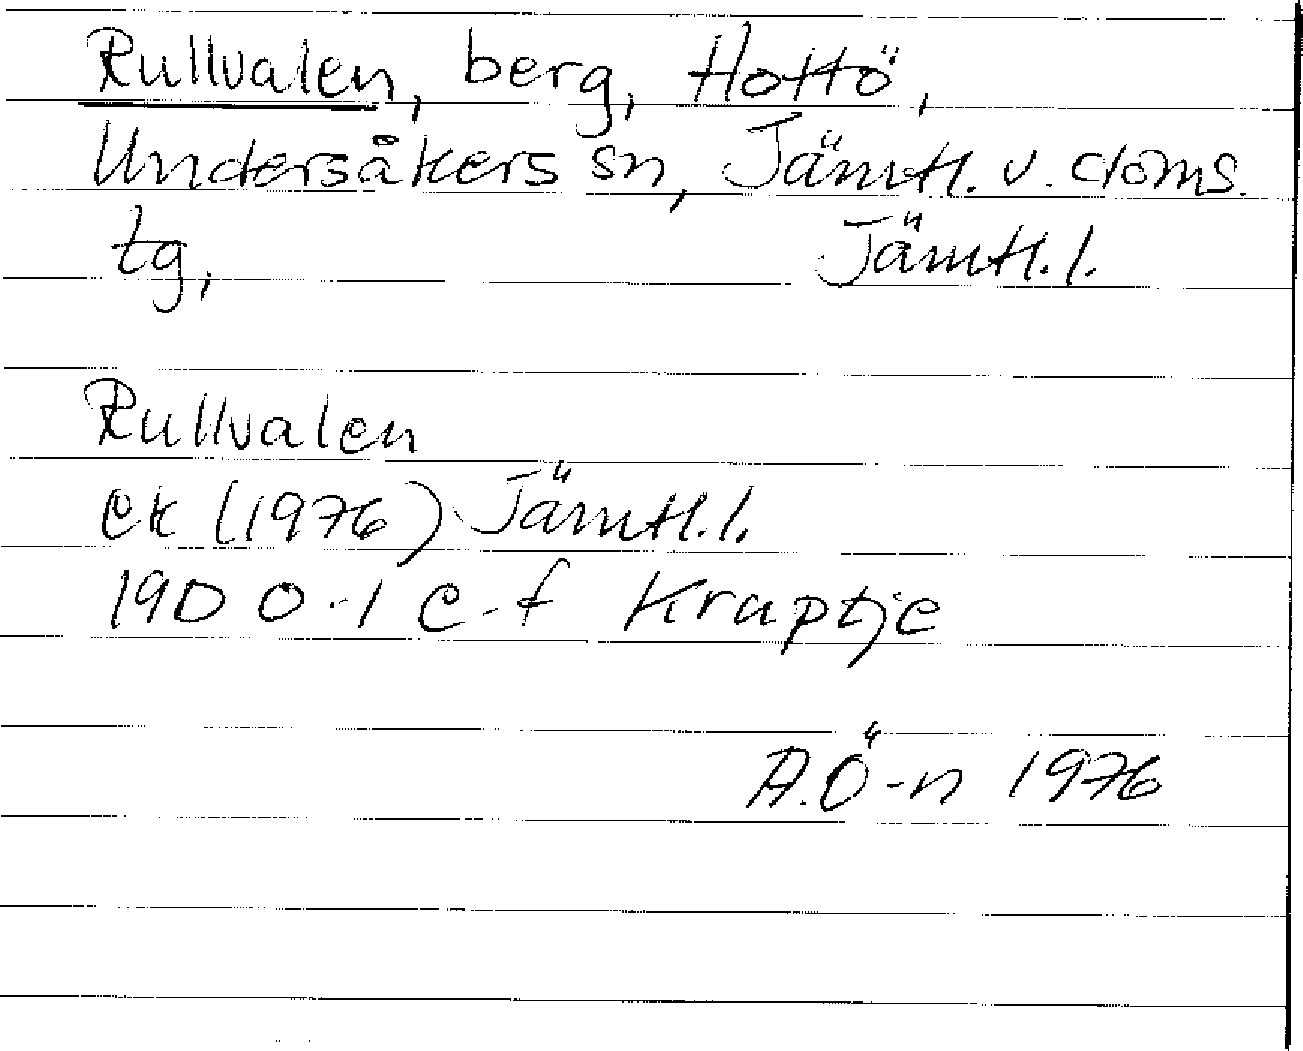 Rullvalen, berg, Hottö,
Undersåkers sn, Jämtl. v. doms.
tg, Jämtl. l.
Rullvalen
ek (1976) Jämtl. l.
19D 0-1 e-f Kruptje
A.Ö-n 1976